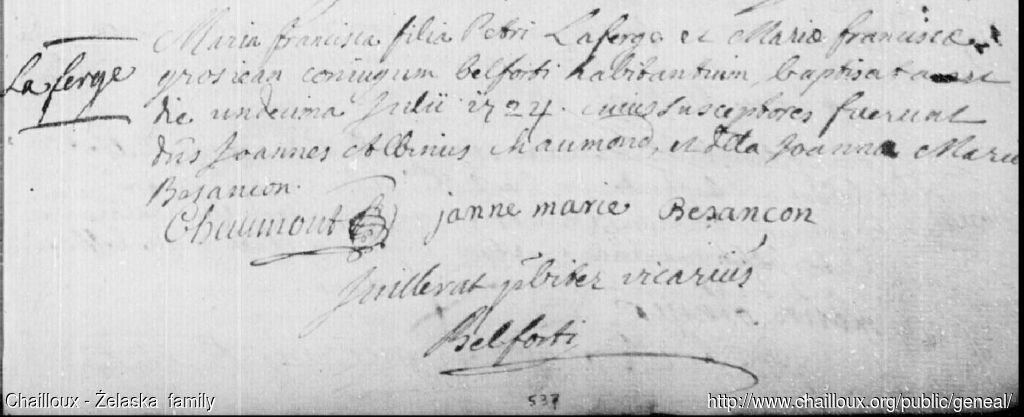 La ferge
Maria francisca filia Petri Laferge et Mariæ franciscæ
grosiean coniugum belforti habitantium, baptisata est
die undecima Julii 1724. cuius susceptores fuerunt
dn̄s Joannes Albinus chaumond, et dtta Joanna Maria
Besancon.
Chaumont janne marie Besancon
Juillerat p̄biter vicarius
Belforti
537
Chailloux - Żelaska family http://www.chailloux.org/public/geneal/